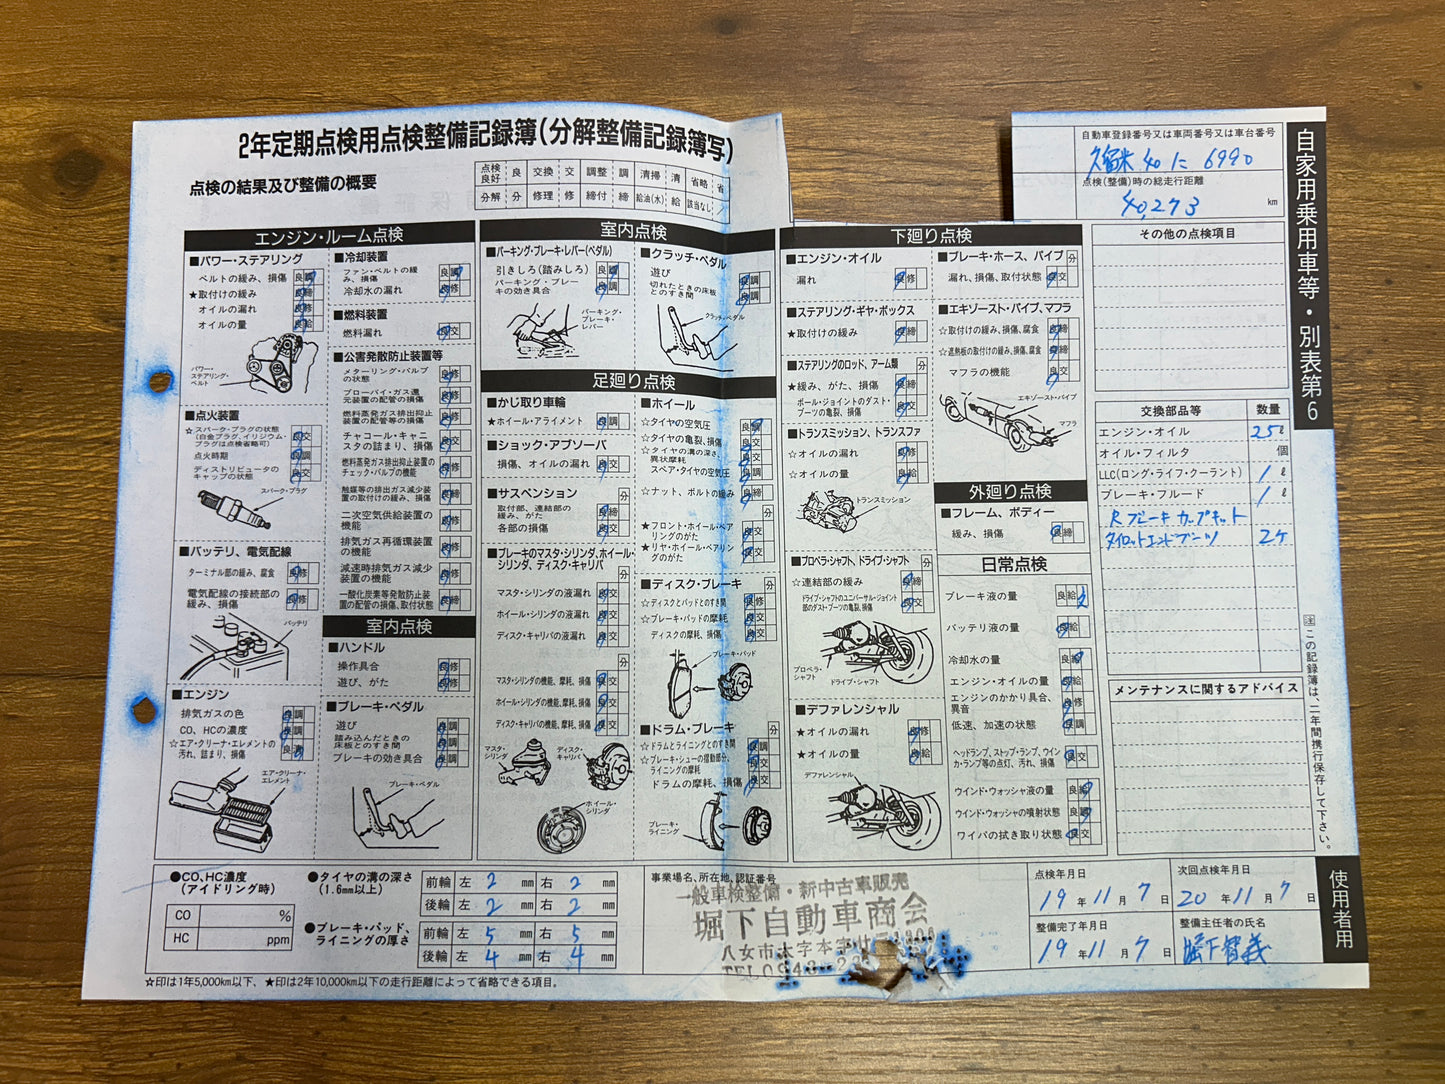 2年定期点検用点検整備記録簿(分解整備記録簿写)
点検の結果及び整備の概要
点検良好 良 交換 交 調整 調 清掃 清 省略 省
分解 分 修理 修 締付 締 給油(水) 給 該当なし /
自動車登録番号又は車両番号又は車台番号
久留米 40 に 6990
点検(整備)時の総走行距離
40,273 km
自家用乗用車等・別表第6
エンジン・ルーム点検
■パワー・ステアリング
ベルトの緩み、損傷 良 調
★取付けの緩み 良 締
オイルの漏れ 良 修
オイルの量 良 給
パワー・ステアリング・ベルト
■点火装置
☆スパーク・プラグの状態
(白金プラグ、イリジウム・プラグは点検省略可) 良 交
点火時期 良 調
ディストリビュータのキャップの状態 良 交
スパーク・プラグ
■バッテリ、電気配線
ターミナル部の緩み、腐食 良 修
電気配線の接続部の緩み、損傷 良 修
バッテリ
■エンジン
排気ガスの色 良 調
CO、HCの濃度 良 調
☆エア・クリーナ・エレメントの汚れ、詰まり、損傷 良 清
エア・クリーナ・エレメント
■冷却装置
ファン・ベルトの緩み、損傷 良 調
冷却水の漏れ 良 修
■燃料装置
燃料漏れ 良 交
■公害発散防止装置等
メターリング・バルブの状態 良 修
ブローバイ・ガス還元装置の配管の損傷 良 修
燃料蒸発ガス排出抑止装置の配管等の損傷 良 修
チャコール・キャニスタの詰まり、損傷 良 交
燃料蒸発ガス排出抑止装置のチェック・バルブの機能 良 修
触媒等の排出ガス減少装置の取付けの緩み、損傷 良 締
二次空気供給装置の機能 良 修
排気ガス再循環装置の機能 良 修
減速時排気ガス減少装置の機能 良 修
一酸化炭素等発散防止装置の配管の損傷、取付状態 良 締
室内点検
■ハンドル
操作具合 良 修
遊び、がた 良 修
■ブレーキ・ペダル
遊び 良 調
踏み込んだときの床板とのすき間 良 調
ブレーキの効き具合 良 調
ブレーキ・ペダル
室内点検
■パーキング・ブレーキ・レバー(ペダル)
引きしろ(踏みしろ) 良 調
パーキング・ブレーキの効き具合 良 調
パーキング・ブレーキ・レバー
■クラッチ・ペダル
遊び 良 調
切れたときの床板とのすき間 良 調
クラッチ・ペダル
足廻り点検
■かじ取り車輪
★ホイール・アライメント 良 調
■ショック・アブソーバ
損傷、オイルの漏れ 良 交
■サスペンション 分
取付部、連結部の緩み、がた 良 締
各部の損傷 良 交
■ブレーキのマスタ・シリンダ、ホイール・シリンダ、ディスク・キャリパ
分
マスタ・シリンダの液漏れ 良 交
ホイール・シリンダの液漏れ 良 交
ディスク・キャリパの液漏れ 良 交
分
マスタ・シリンダの機能、摩耗、損傷 良 交
ホイール・シリンダの機能、摩耗、損傷 良 交
ディスク・キャリパの機能、摩耗、損傷 良 交
マスタ・シリンダ
ディスク・キャリパ
ホイール・シリンダ
■ホイール
☆タイヤの空気圧 良 調
☆タイヤの亀裂、損傷 良 交
☆タイヤの溝の深さ、異状摩耗 良 交
スペア・タイヤの空気圧 良 調
☆ナット、ボルトの緩み 良 締
分
★フロント・ホイール・ベアリングのがた 良 交
★リヤ・ホイール・ベアリングのがた 良 交
■ディスク・ブレーキ 分
☆ディスクとパッドとのすき間 良 修
☆ブレーキ・パッドの摩耗 良 交
ディスクの摩耗、損傷 良 交
ブレーキ・パッド
■ドラム・ブレーキ 分
☆ドラムとライニングとのすき間 良 調
☆ブレーキ・シューの摺動部分、ライニングの摩耗 良 交
ドラムの摩耗、損傷 良 交
ブレーキ・ライニング
下廻り点検
■エンジン・オイル
漏れ 良 修
■ステアリング・ギヤ・ボックス
★取付けの緩み 良 締
■ステアリングのロッド、アーム類
★緩み、がた、損傷 良 締
ボール・ジョイントのダスト・ブーツの亀裂、損傷 良 交
■トランスミッション、トランスファ
☆オイルの漏れ 良 修
☆オイルの量 良 給
トランスミッション
■プロペラ・シャフト、ドライブ・シャフト 分
☆連結部の緩み 良 締
ドライブ・シャフトのユニバーサル・ジョイント部のダスト・ブーツの亀裂、損傷 良 交
プロペラ・シャフト
ドライブ・シャフト
■デファレンシャル
★オイルの漏れ 良 修
★オイルの量 良 給
デファレンシャル
■ブレーキ・ホース、パイプ 分
漏れ、損傷、取付状態 良 交
■エキゾースト・パイプ、マフラ
☆取付けの緩み、損傷、腐食 良 締
☆遮熱板の取付けの緩み、損傷、腐食 良 締
マフラの機能 良 交
エキゾースト・パイプ
マフラ
外廻り点検
■フレーム、ボディー
緩み、損傷 良 締
日常点検
ブレーキ液の量 良 給
バッテリ液の量 良 給
冷却水の量 良 給
エンジン・オイルの量 良 給
エンジンのかかり具合、異音 良 修
低速、加速の状態 良 調
ヘッドランプ、ストップ・ランプ、ウインカ・ランプ等の点灯、汚れ、損傷 良 交
ウインド・ウォッシャ液の量 良 給
ウインド・ウォッシャの噴射状態 良 調
ワイパの拭き取り状態 良 交
その他の点検項目
交換部品等 数量
エンジン・オイル 2.5 ℓ
オイル・フィルタ 個
LLC(ロング・ライフ・クーラント) 1 ℓ
ブレーキ・フルード 1 ℓ
R ブレーキ カップキット
タイロットエンドブーツ 2ケ
メンテナンスに関するアドバイス
注 この記録簿は、二年間携行保存して下さい。
使用者用
●CO、HC濃度(アイドリング時)
CO %
HC ppm
●タイヤの溝の深さ(1.6mm以上)
前輪 左 2 mm 右 2 mm
後輪 左 2 mm 右 2 mm
●ブレーキ・パッド、ライニングの厚さ
前輪 左 5 mm 右 5 mm
後輪 左 4 mm 右 4 mm
事業場名、所在地、認証番号
一般車検整備・新中古車販売
堀下自動車商会
八女市大字本
TEL0943-2
点検年月日
19年11月7日
次回点検年月日
20年11月7日
整備完了年月日
19年11月7日
整備主任者の氏名
堀下智義
☆印は1年5,000km以下、★印は2年10,000km以下の走行距離によって省略できる項目。